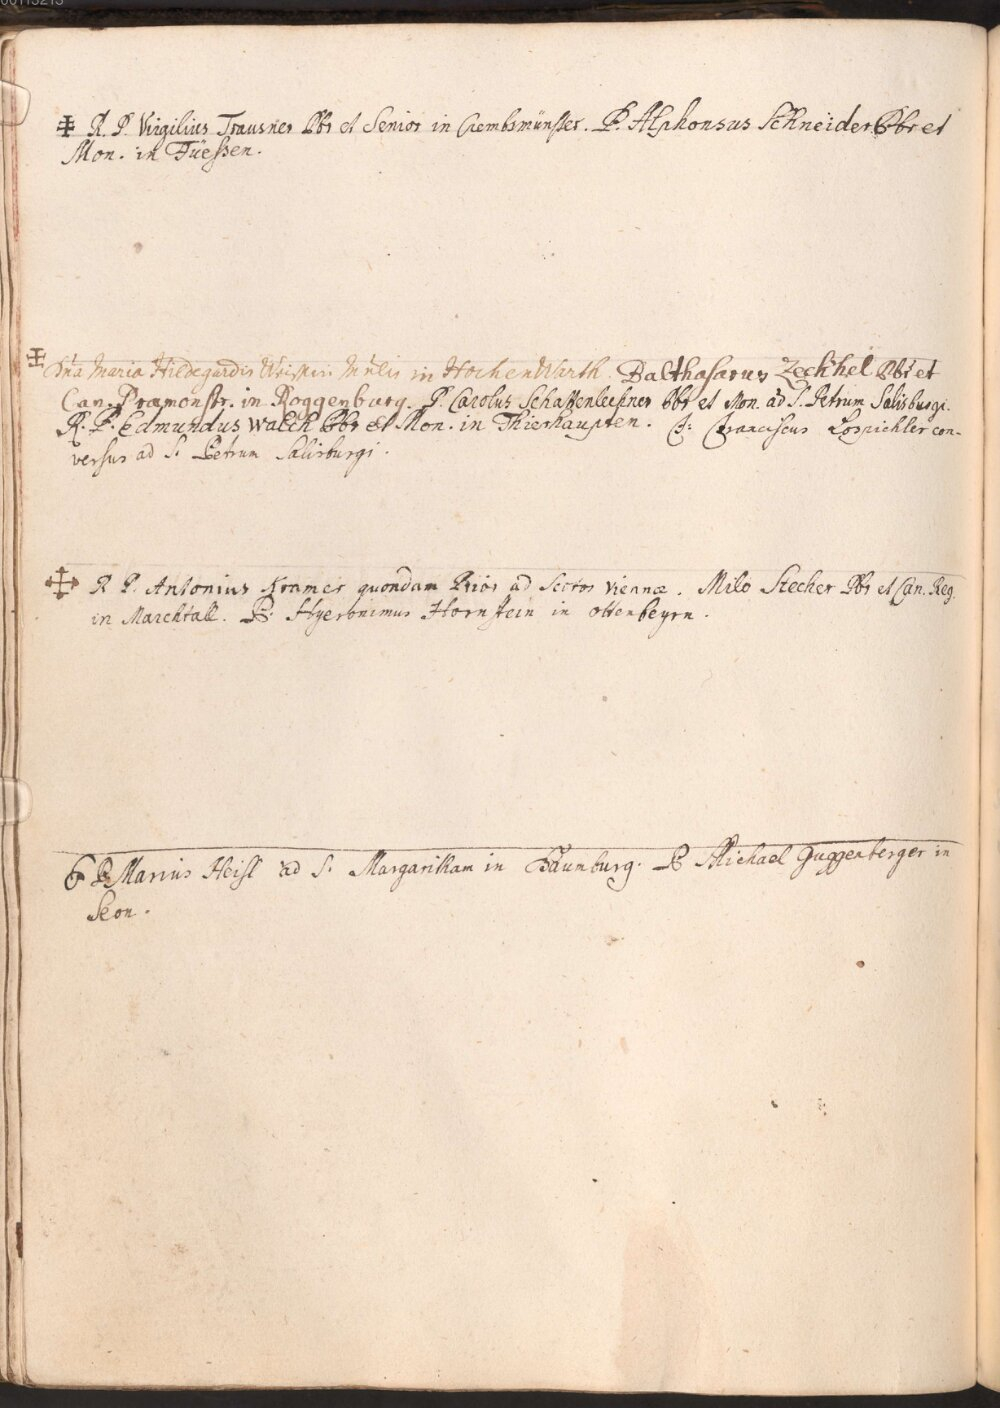 R. P. Virgilius Trausner Pbr et Senior in Crembsmünster. P. Alphonsus Schneider Pbr et
Mon. in Füessen.
Dna Maria Hildegardis in HochenWarth. Balthasarus Zechhel Pbr et
Can. Præmonstr. in Roggenburg. P. Carolus Schattenleuner Pbr et Mon. ad S. Petrum Salisburgi.
R. P. Edmundus Walch Pbr et Mon. in Thierhaupten. Franciscus Lospichler con-
versus ad S. Petrum Salisburgi.
R P. Antonius Kramer quondam Prior ad Scotos Viennæ. Milo Stecher Pbr et Can. Reg.
in Marchtall. P. Hyeronimus Hornstein in Ottenbeyrn.
P Marius Heisl ad S. Margaritham in Baumburg. P Michael Guggenberger in
Seon.